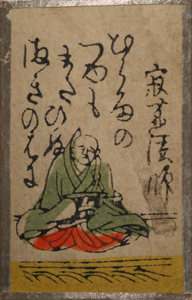 寂蓮法師
むらさめの
つゆも
まだひぬ
まきのはに